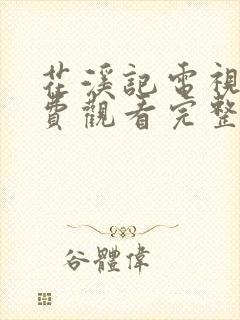 花溪記電視
費觀看完整
谷體偉